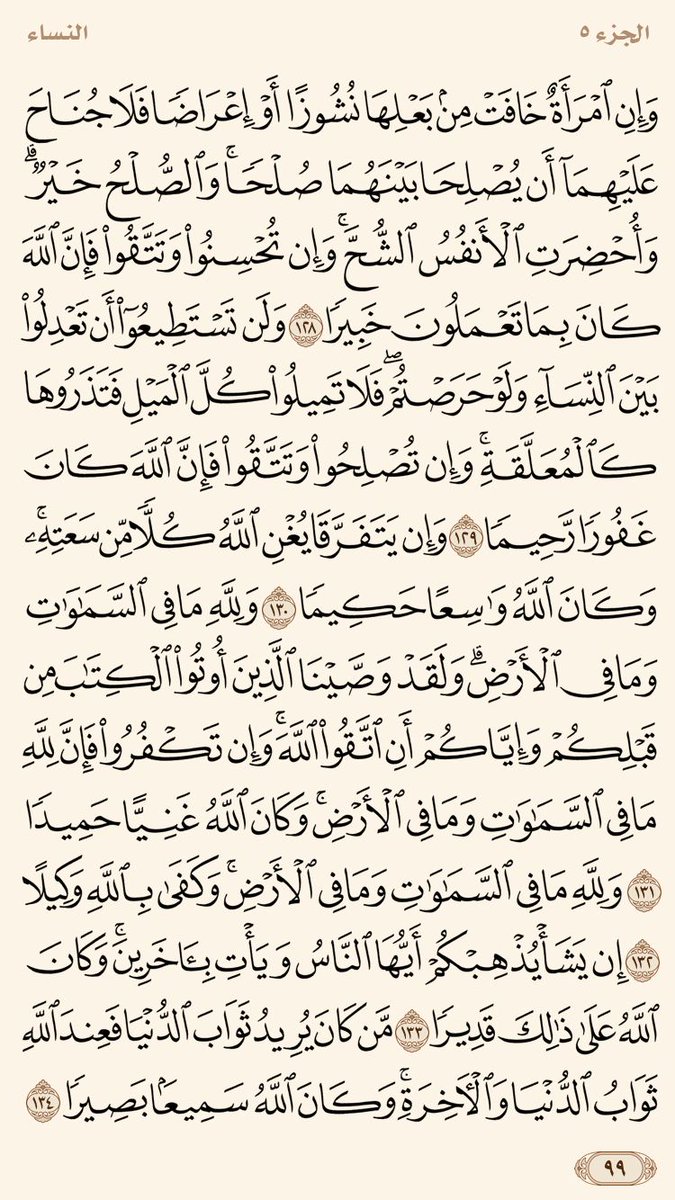 الجزء ٥
النساء
وَإِنِ ٱمْرَأَةٌ خَافَتْ مِنۢ بَعْلِهَا نُشُوزًا أَوْ إِعْرَاضًا فَلَا جُنَاحَ
عَلَيْهِمَآ أَن يُصْلِحَا بَيْنَهُمَا صُلْحًا ۚ وَٱلصُّلْحُ خَيْرٌ ۗ
وَأُحْضِرَتِ ٱلْأَنفُسُ ٱلشُّحَّ ۚ وَإِن تُحْسِنُوا۟ وَتَتَّقُوا۟ فَإِنَّ ٱللَّهَ
كَانَ بِمَا تَعْمَلُونَ خَبِيرًا ١٢٨ وَلَن تَسْتَطِيعُوٓا۟ أَن تَعْدِلُوا۟
بَيْنَ ٱلنِّسَآءِ وَلَوْ حَرَصْتُمْ ۖ فَلَا تَمِيلُوا۟ كُلَّ ٱلْمَيْلِ فَتَذَرُوهَا
كَٱلْمُعَلَّقَةِ ۚ وَإِن تُصْلِحُوا۟ وَتَتَّقُوا۟ فَإِنَّ ٱللَّهَ كَانَ
غَفُورًا رَّحِيمًا ١٢٩ وَإِن يَتَفَرَّقَا يُغْنِ ٱللَّهُ كُلًّا مِّن سَعَتِهِۦ ۚ
وَكَانَ ٱللَّهُ وَٰسِعًا حَكِيمًا ١٣٠ وَلِلَّهِ مَا فِى ٱلسَّمَٰوَٰتِ
وَمَا فِى ٱلْأَرْضِ ۗ وَلَقَدْ وَصَّيْنَا ٱلَّذِينَ أُوتُوا۟ ٱلْكِتَٰبَ مِن
قَبْلِكُمْ وَإِيَّاكُمْ أَنِ ٱتَّقُوا۟ ٱللَّهَ ۚ وَإِن تَكْفُرُوا۟ فَإِنَّ لِلَّهِ
مَا فِى ٱلسَّمَٰوَٰتِ وَمَا فِى ٱلْأَرْضِ ۚ وَكَانَ ٱللَّهُ غَنِيًّا حَمِيدًا
١٣١ وَلِلَّهِ مَا فِى ٱلسَّمَٰوَٰتِ وَمَا فِى ٱلْأَرْضِ ۚ وَكَفَىٰ بِٱللَّهِ وَكِيلًا
١٣٢ إِن يَشَأْ يُذْهِبْكُمْ أَيُّهَا ٱلنَّاسُ وَيَأْتِ بِـَٔاخَرِينَ ۚ وَكَانَ
ٱللَّهُ عَلَىٰ ذَٰلِكَ قَدِيرًا ١٣٣ مَّن كَانَ يُرِيدُ ثَوَابَ ٱلدُّنْيَا فَعِندَ ٱللَّهِ
ثَوَابُ ٱلدُّنْيَا وَٱلْـَٔاخِرَةِ ۚ وَكَانَ ٱللَّهُ سَمِيعًۢا بَصِيرًا ١٣٤
٩٩